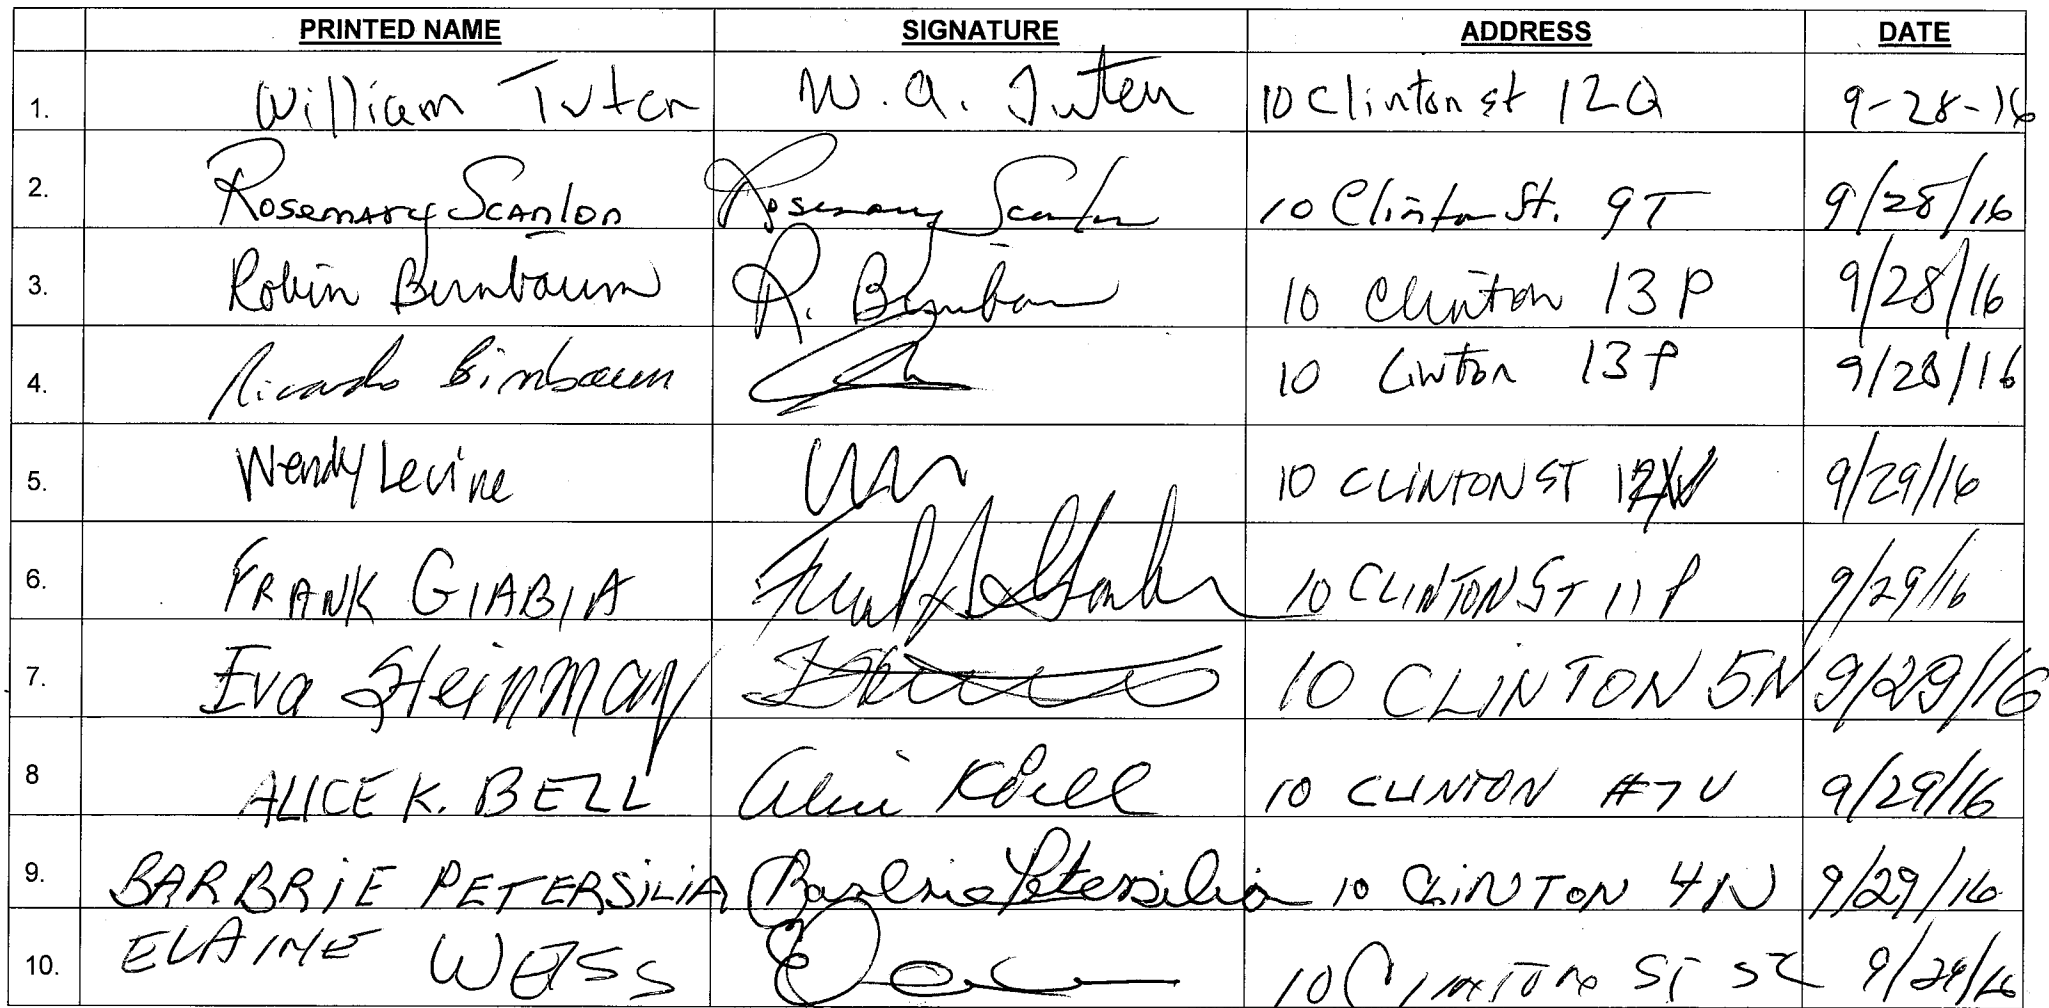 PRINTED NAME SIGNATURE ADDRESS DATE
1. William Tuten W. A. Tuten 10 Clinton st 12Q 9-28-16
2. Rosemary Scanlon Rosemary Scanlon 10 Clinton St. 9T 9/28/16
3. Robin Birnbaum R. Birnbaum 10 Clinton 13P 9/28/16
4. Ricardo Birnbaum 10 Clinton 13P 9/28/16
5. Wendy Levine 10 CLINTON ST 9/29/16
6. FRANK GIABIA 10 CLINTON ST 11P 9/29/16
7. Eva Steinman 10 CLINTON 5N 9/29/16
8 ALICE K. BELL Alice K Bell 10 CLINTON #7U 9/29/16
9. BARBRIE PETERSILIA Barbrie Petersilia 10 CLINTON 4N 9/29/16
10. ELAINE WEISS 10 Clinton ST 9/29/16